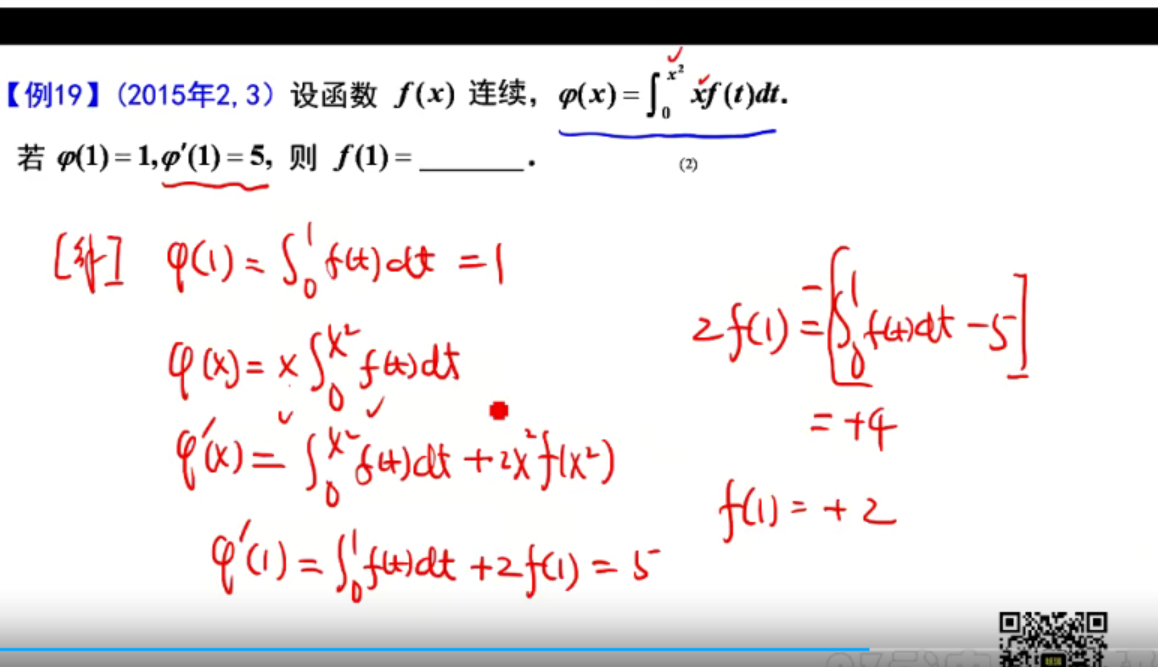 【例19】(2015年2,3) 设函数 f(x) 连续, φ(x)=∫₀^{x²} xf(t)dt.
若 φ(1)=1,φ′(1)=5, 则 f(1)=________.
(2)
[解] φ(1)=∫₀¹f(t)dt=1
φ(x)=x∫₀^{x²}f(t)dt
φ′(x)=∫₀^{x²}f(t)dt+2x²f(x²)
φ′(1)=∫₀¹f(t)dt+2f(1)=5
2f(1)=-[∫₀¹f(t)dt-5]
=+4
f(1)=+2